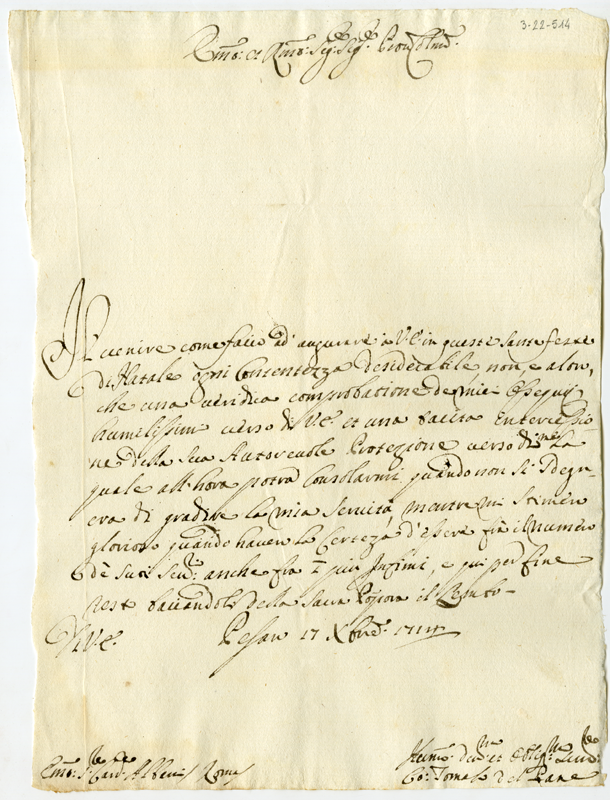 3-22-514
Em̃o: et Rm̃o: Sig:re Sig:re Pron Colmo:
Il uenire come facio ad' augurare à V.E. in queste Sante feste
di Natale ogni Contentezza desiderabile non, e alon,
che una ueridica comprobatione de miei Ossequij
humilissimi uerso di V.E. et una tacita Entercessio
ne della Sua Autoreuole Protezione uerso di me La
quale all'hora potrà Consolarmi, quando non Si sdegn-
erà di gradire la mia Seruitù, mentre mi Stimerò
glorioso quando hauerò la Certezza d'essere frà il numero
de Suoi Seru:ri anche frà i più Infimi, e qui per fine
resto baciandole della Sacra Porpora il Lembo-
Di V.E.
Pesaro 17 Xbre:
Em̃o: S:re Card:le Albani Roma
Humo: deu:mo et Oblig:mo Seru:re
Co: Tomaso del Pane